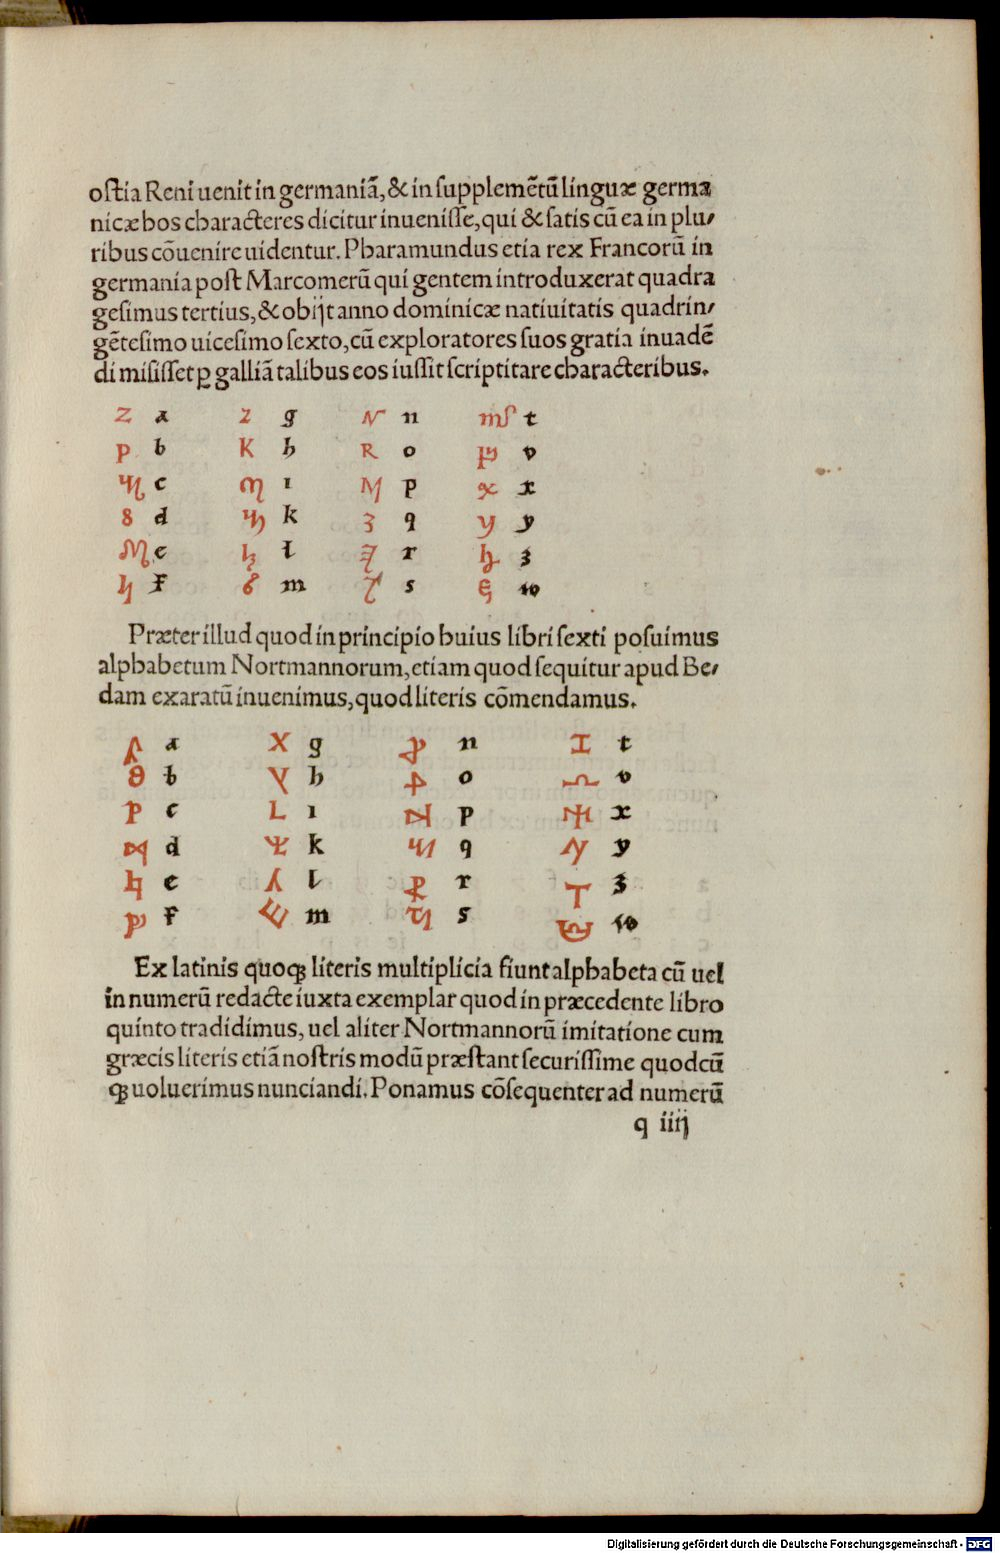 ostia Reni uenit in germaniā, & in supplemētū linguæ germa
nicæ hos characteres dicitur inuenisse, qui & satis cū ea in plu/
ribus cōuenire uidentur. Pharamundus etia rex Francorū in
germania post Marcomerū qui gentem introduxerat quadra
gesimus tertius, & obijt anno dominicæ natiuitatis quadrin/
gētesimo uicesimo sexto, cū exploratores suos gratia inuadē
di misisset ꝑ galliā talibus eos iussit scriptitare characteribus.
a g n t
b h o v
c i p x
d k q y
e l r z
f m s w
Præter illud quod in principio huius libri sexti posuimus
alphabetum Nortmannorum, etiam quod sequitur apud Be/
dam exaratū inuenimus, quod literis cōmendamus.
a g n t
b h o v
c i p x
d k q y
e l r z
f m s w
Ex latinis quoqꝫ literis multiplicia fiunt alphabeta cū uel
in numerū redacte iuxta exemplar quod in præcedente libro
quinto tradidimus, uel aliter Nortmannorū imitatione cum
græcis literis etiā nostris modū præstant securissime quodcū
qꝫ uoluerimus nunciandi. Ponamus cōsequenter ad numerū
q iiij
Digitalisierung gefördert durch die Deutsche Forschungsgemeinschaft - DFG